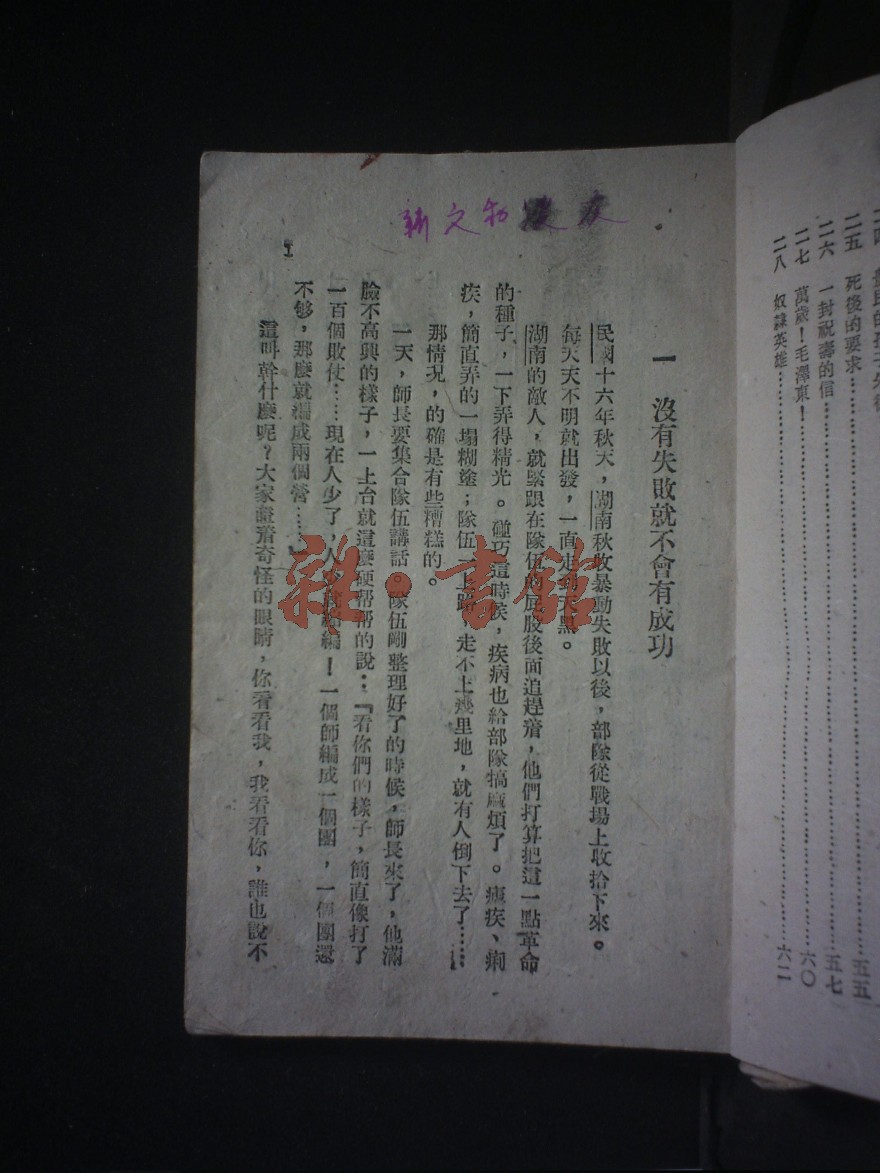 二五　死後的要求………五五
二六　一封祝壽的信………五七
二七　萬歲！毛澤東！………六〇
二八　奴隸英雄………六二
一　沒有失敗就不會有成功
民國十六年秋天，湖南秋收暴動失敗以後，部隊從戰場上收拾下來。
每天天不明就出發，一直走到天黑。
湖南的敵人，就緊跟在隊伍的屁股後面追趕着，他們打算把這一點革命
的種子，一下弄得精光。碰巧這時候，疾病也給部隊搞麻煩了。瘧疾、痢
疾，簡直弄的一塌糊塗；隊伍一上路，走不上幾里地，就有人倒下去了……
那情況，的確是有些糟糕的。
一天，師長要集合隊伍講話。隊伍剛整理好了的時候，師長來了，他滿
臉不高興的樣子，一上台就這麼硬幫幫的說：「看你們的樣子，簡直像打了
一百個敗仗……現在人少了，人少縮編！一個師編成一個團，一個團還
不够，那麼就編成兩個營……」
這叫幹什麼呢？大家盡着奇怪的眼睛，你看看我，我看看你，誰也說不
1
新文
雜·書館